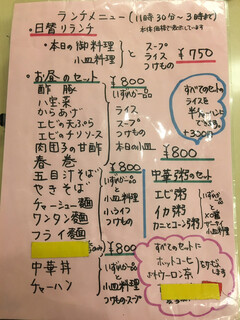 ランチメニュー(11時30分〜3時まで)
本体価格で表示しています
・日替りランチ
・本日の御料理
小皿料理
と
スープ
ライス
つけもの
¥750
・お昼のセット
¥800
酢豚
八宝菜
からあげ
エビの天ぷら
エビのチリソース
肉団子の甘酢
春巻
いずれか一品
と
ライス
スープ
つけもの
本日の小皿
すべてのセットに
ライスを
半チャーハンに
できます。
+330円
¥800
五目汁そば
やきそば
チャーシュー麺
ワンタン麺
フライ麺
いずれか一品
と
小皿料理
小ライス
つけもの
¥800
中華粥のセット
エビ粥
イカ粥
カニとコーン粥
いずれか一品
と
小皿料理
¥800
中華丼
チャーハン
いずれか一品
と
小皿料理
つけもの スープ
すべてのセットに
ホットコーヒー
ウーロン茶